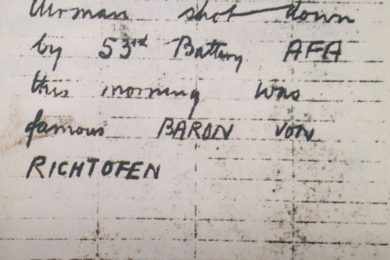 Airman shot down
by 53rd Battery AFA
this morning was
famous BARON VON
RICHTOFEN